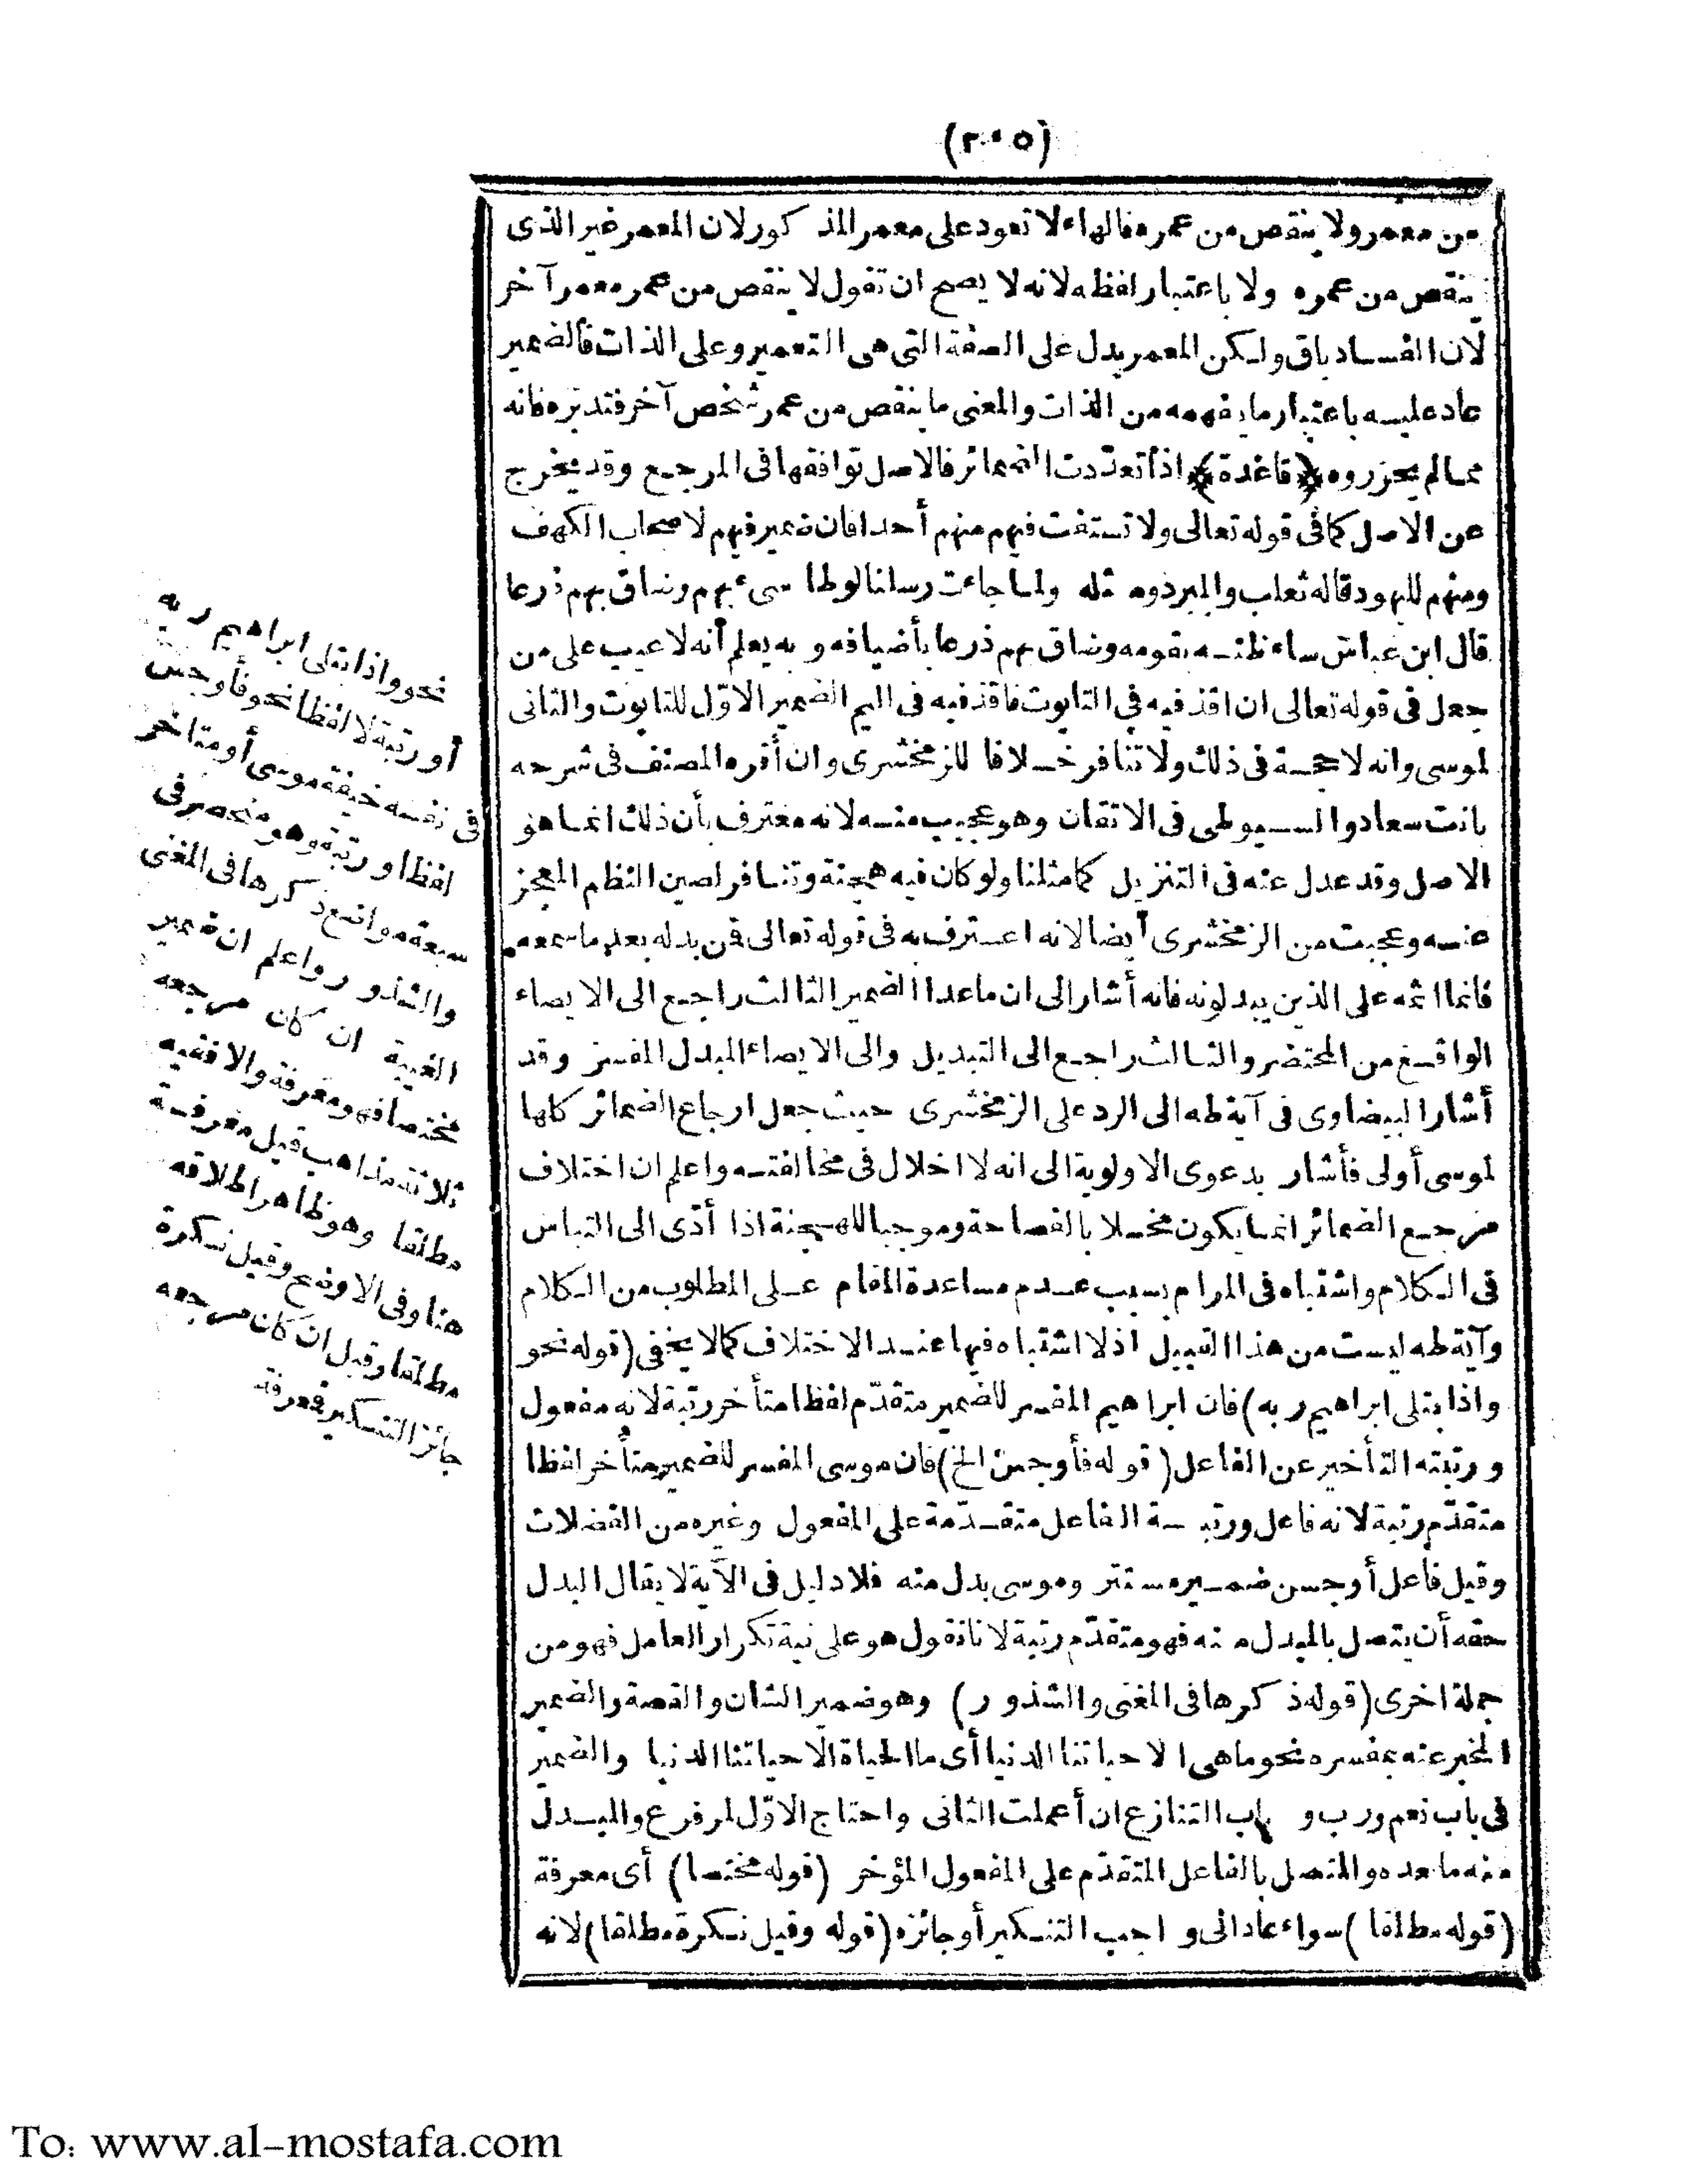 (٢٠٥)
من معمر ولا ينقص من عمره فالهاء لا تعود على معمر المذكور لان المعمر غير الذى
ينقص من عمره ولا باعتبار لفظه لانه لا يصح ان تقول لا ينقص من عمر معمر آخر
لان الفساد باق ولكن المعمر يدل على الصفة التى هى التعمير وعلى الذات فالضمير
عاد عليه باعتبار ما يفهمه من الذات والمعنى ما ينقص من عمر شخص آخر فتدبره فانه
مما لم يحرروه ﴿قاعدة﴾ اذا تعددت الضمائر فالاصل توافقها فى المرجع وقد يخرج
عن الاصل كما فى قوله تعالى ولا تستفت فيهم منهم أحدا فان ضمير فيهم لاصحاب الكهف
ومنهم لليهود قاله ثعلب والمبرد ومثله ولما جاءت رسلنا لوطا سىء بهم وضاق بهم ذرعا
قال ابن عباس ساء ظنه بقومه وضاق بهم ذرعا بأضيافه وبه يعلم أنه لا عيب على من
جعل فى قوله تعالى ان اقذفيه فى التابوت فاقذفيه فى اليم الضمير الاوّل للتابوت والثانى
لموسى وانه لا هجنة فى ذلك ولا تنافر خلافا للزمخشرى وان أقره المصنف فى شرحه
بانت سعاد والسيوطى فى الاتقان وهو عجيب منه لانه معترف بأن ذلك انما هو
الاصل وقد عدل عنه فى التنزيل كما مثلنا ولو كان فيه هجنة وتنافر لصين النظم المعجز
عنه وعجبت من الزمخشرى أيضا لانه اعترف به فى قوله تعالى فمن بدله بعد ما سمعه
فانما اثمه على الذين يبدلونه فانه أشار الى ان ما عدا الضمير الثالث راجع الى الايصاء
الواقع من المحتضر والثالث راجع الى التبديل والى الايصاء المبدل المفسر وقد
أشار البيضاوى فى آية طه الى الرد على الزمخشرى حيث جعل ارجاع الضمائر كلها
لموسى أولى فأشار بدعوى الاولوية الى انه لا اخلال فى مخالفته واعلم ان اختلاف
مرجع الضمائر انما يكون مخلا بالفصاحة وموجبا للهجنة اذا أدّى الى التباس
فى الكلام واشتباه فى المرام بسبب عدم مساعدة المقام على المطلوب من الكلام
وآية طه ليست من هذا القبيل اذ لا اشتباه فيها عند الاختلاف كما لا يخفى (قوله نحو
واذ ابتلى ابراهيم ربه) فان ابراهيم المفسر للضمير متقدّم لفظا متأخر رتبة لانه مفعول
ورتبته التأخير عن الفاعل (قوله فأوجس الخ) فان موسى المفسر للضمير متأخر لفظا
متقدّم رتبة لانه فاعل ورتبة الفاعل متقدّمة على المفعول وغيره من الفضلات
وقيل فاعل أوجس ضمير مستتر وموسى بدل منه فلا دليل فى الآية لا يقال البدل
حقه أن يتصل بالمبدل منه فهو متقدّم رتبة لانا نقول هو على نية تكرار العامل فهو من
جملة اخرى (قوله ذكرها فى المغنى والشذور) وهو ضمير الشان والقصة والضمير
المخبر عنه بمفسره نحو ما هى الا حياتنا الدنيا أى ما الحياة الا حياتنا الدنيا والضمير
فى باب نعم ورب و باب التنازع ان أعملت الثانى واحتاج الاوّل لمرفوع والمبدل
منه ما بعده والمتصل بالفاعل المتقدّم على المفعول المؤخر (قوله مختصا) أى معرفة
(قوله مطلقا) سواء عاد الى واجب التنكير أو جائزه (قوله وقيل نكرة مطلقا) لانه
نحو واذ ابتلى ابراهيم ربه
أو رتبة لا لفظا نحو فأوجس
فى نفسه خيفة موسى أو متاخر
لفظا ورتبة وهو منحصر فى
سبعة مواضع ذكرها فى المغنى
والشذور واعلم ان ضمير
الغيبة ان كان مرجعه
مختصا فهو معرفة والا ففيه
ثلاثة مذاهب قيل معرفة
مطلقا وهو ظاهر اطلاقه
هنا وفى الاوضح وقيل نكرة
مطلقا وقيل ان كان مرجعه
جائز التنكير فمعرفة
To: www.al-mostafa.com